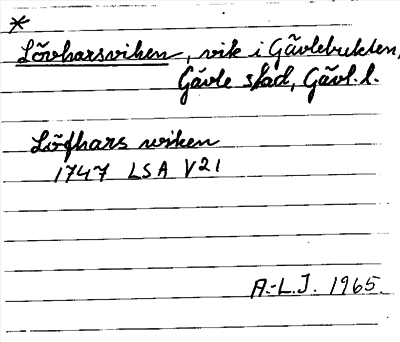 *
Lövharsviken, vik i Gävlebukten,
Gävle stad, Gävl. l.
Löfhars wiken
1747 LSA V21
A.-L.J. 1965.